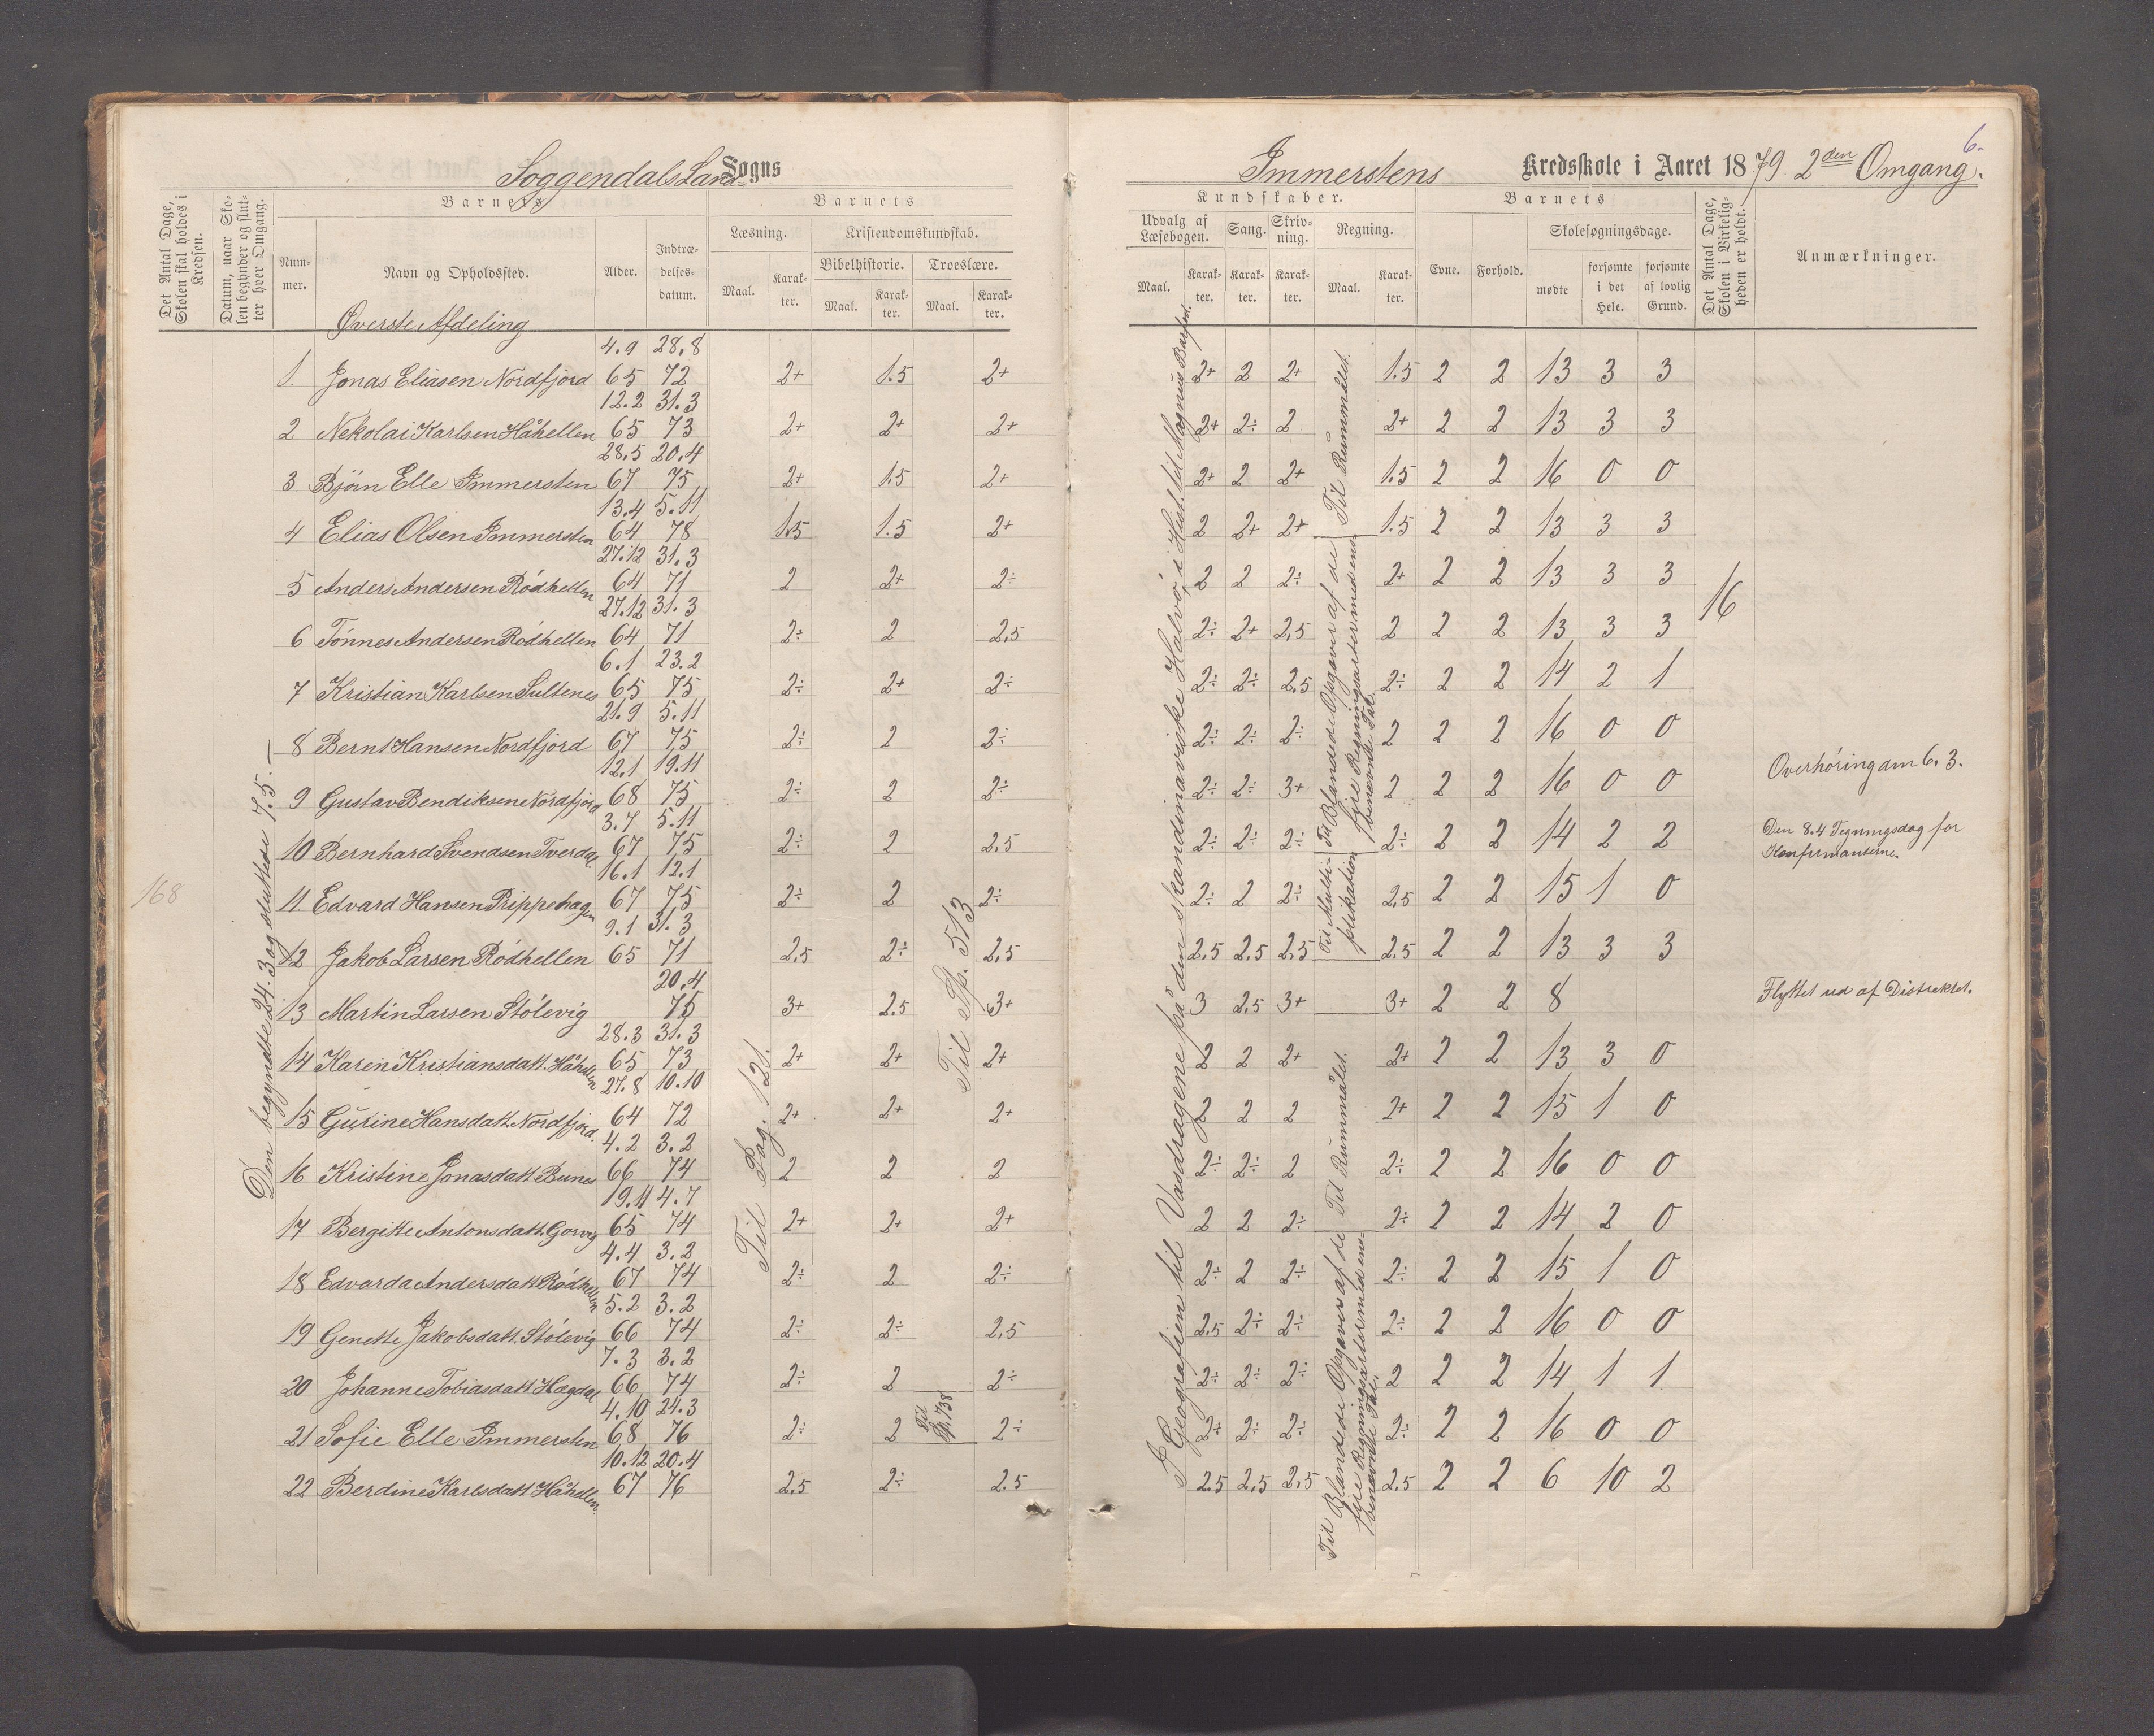 Soggendals Land Sogns
Immerstens Kredsskole i Aaret 1879 2den Omgang.
6.
Det Antal Dage, Skolen skal holdes i Kredsen.
Datum, naar Skolen begynder og slutter hver Omgang.
Barnets
Nummer.
Navn og Opholdssted.
Alder.
Indtrædelsesdatum.
Barnets
Læsning.
Maal.
Karakter.
Kristendomskundskab.
Bibelhistorie.
Maal.
Karakter.
Troeslære.
Maal.
Karakter.
Kundskaber.
Udvalg af Læsebogen.
Maal.
Karakter.
Sang.
Karakter.
Skrivning.
Karakter.
Regning.
Maal.
Karakter.
Barnets
Evne.
Forhold.
Skolesøgningsdage.
mødte
forsømte i det Hele.
forsømte af lovlig Grund.
Det Antal Dage, Skolen i Virkeligheden er holdt.
Anmærkninger.
Øverste Afdeling
1 Jonas Eliasen Nordfjord 4.9 65 28.8 72 2+ 1.5 2+ 2+ 2 2+ 1.5 2 2 13 3 3
2 Nekolai Karlsen Håhellen 12.2 65 31.3 73 2+ 2+ 2+ 2+ 2÷ 2 2+ 2 2 13 3 3
3 Bjørn Elle Immersten 28.5 67 20.4 75 2+ 1.5 2+ 2+ 2 2+ 1.5 2 2 16 0 0
4 Elias Olsen Immersten 13.4 64 5.11 78 1.5 1.5 2+ 2 2+ 2+ 1.5 2 2 13 3 3
5 Anders Andersen Rødhellen 27.12 64 31.3 71 2 2+ 2÷ 2 2 2÷ 2+ 2 2 13 3 3
6 Tønnes Andersen Rødhellen 27.12 64 31.3 71 2÷ 2 2,5 2÷ 2+ 2,5 2 2 2 13 3 3
7 Kristian Karlsen Sultenes 6.1 65 23.2 75 2÷ 2+ 2÷ 2÷ 2÷ 2,5 2÷ 2 2 14 2 1
8 Bernt Hansen Nordfjord 21.9 67 5.11 75 2÷ 2 2÷ 2÷ 2÷ 2÷ 2 2 2 16 0 0
9 Gustav Bendiksen Nordfjord 12.1 68 19.11 75 2÷ 2 2÷ 2÷ 2÷ 3+ 2 2 2 16 0 0
10 Bernhard Svendsen Tverdal 3.7 67 5.11 75 2÷ 2 2,5 2÷ 2÷ 2÷ 2÷ 2 2 14 2 2
11 Edvard Hansen Prippehagen 16.1 67 12.1 75 2÷ 2 2÷ 2÷ 2 2÷ 2,5 2 2 15 1 0
12 Jakob Larsen Rødhellen 9.1 65 31.3 71 2,5 2÷ 2,5 2,5 2,5 2,5 2,5 2 2 13 3 3
13 Martin Larsen Stølevig 20.4 75 3+ 2.5 3+ 3 2,5 3+ 3+ 2 2 8
14 Karen Kristiansdatt. Håhellen 28.3 65 31.3 73 2+ 2+ 2+ 2 2 2+ 2+ 2 2 13 3 0
15 Gurine Hansdatt. Nordfjord. 27.8 64 10.10 72 2+ 2+ 2+ 2 2 2 2+ 2 2 15 1 0
16 Kristine Jonasdatt. Bunes 4.2 66 3.2 74 2 2 2 2÷ 2÷ 2 2÷ 2 2 16 0 0
17 Bergitte Antonsdatt. Gorvig 19.11 65 4.7 74 2+ 2+ 2+ 2 2 2÷ 2÷ 2 2 14 2 0
18 Edvarda Andersdatt Rødhellen 4.4 67 3.2 74 2÷ 2 2÷ 2÷ 2 2÷ 2÷ 2 2 15 1 0
19 Genette Jakobsdatt. Stølevig 5.2 66 3.2 74 2÷ 2÷ 2,5 2,5 2÷ 2÷ 2÷ 2 2 16 0 0
20 Johanne Tobiasdatt. Hægdal 7.3 66 3.2 74 2÷ 2 2÷ 2÷ 2÷ 2÷ 2 2 2 14 1 1
21 Sofie Elle Immersten 4.10 68 24.3 76 2÷ 2 2÷ 2÷ 2÷ 2÷ 2÷ 2 2 16 0 0
22 Berdine Karlsdatt Håhellen 10.12 67 20.4 76 2,5 2÷ 2.5 2.5 2,5 2,5 2,5 2 2 6 10 2
168
Den begyndte 24.3 og sluttede 7.5.—
Til Pag. 121.
Til Sp. 513
Til Sp. 738
I Geografien til Vasdragene på den skandinaviske Halvø, i Hist. til Magnus Barfod.
Til Rummålet.
Til Blandede Opgaver af de fire Regningsarter med ensbenævnte Tal.
Til Multiplikation
Til Rummålet.
Til Blandede Opgaver af de fire Regningsarter med ensbenævnte Tal.
16
Overhøring den 6.3.
Den 8.4 Tegningsdag for
Konfirmanterne.
Flyttet ud af Distriktet.